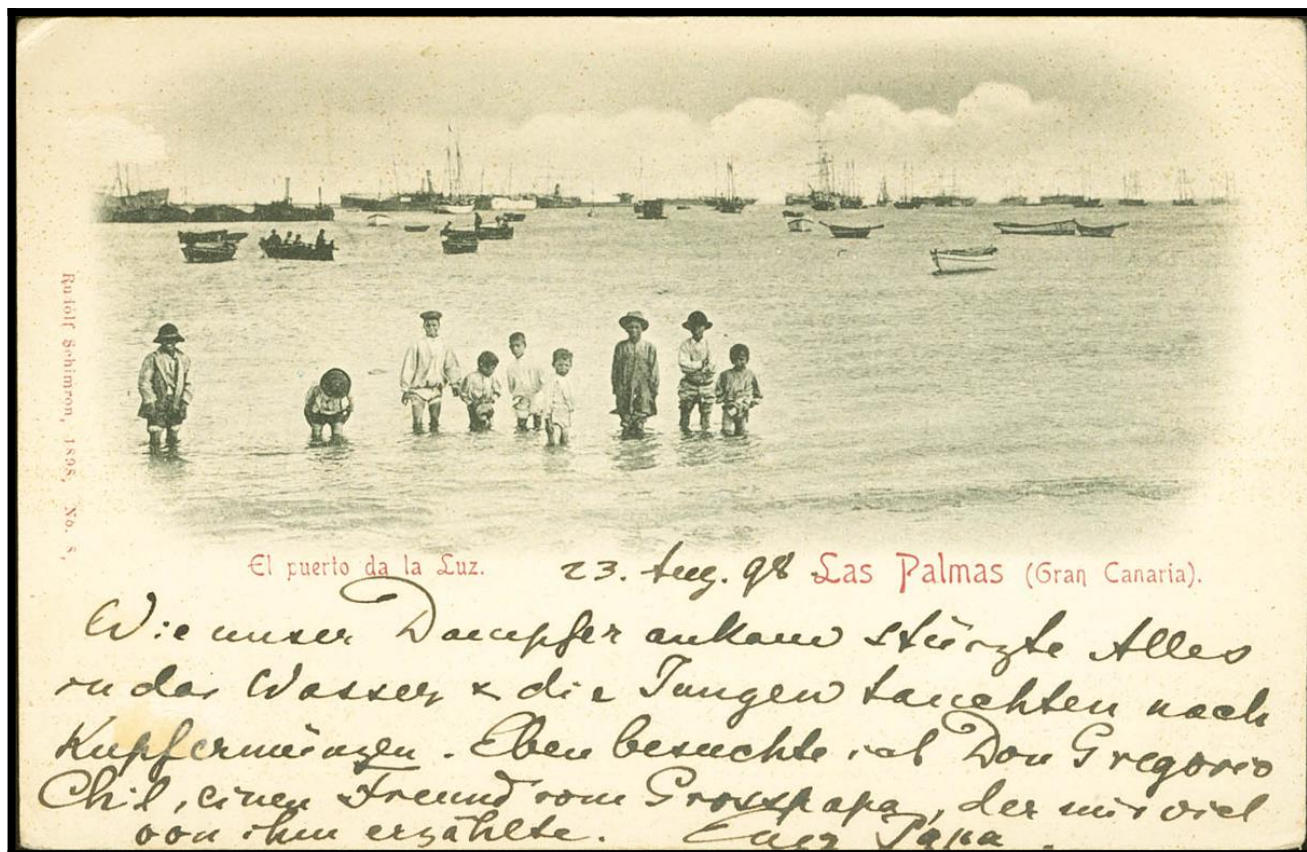 Rudolf Schimron, 1898, No. 8,
El puerto da la Luz.
23. Aug. 98
Las Palmas (Gran Canaria).
Wie unser Dampfer ankam stürzte Alles
in das Wasser & die Jungen tauchten nach
Kupfermünzen. Eben besuchte ich Don Gregorio
Chil, einen Freund vom Grosspapa, der mir viel
von ihm erzählte. Euer Papa.